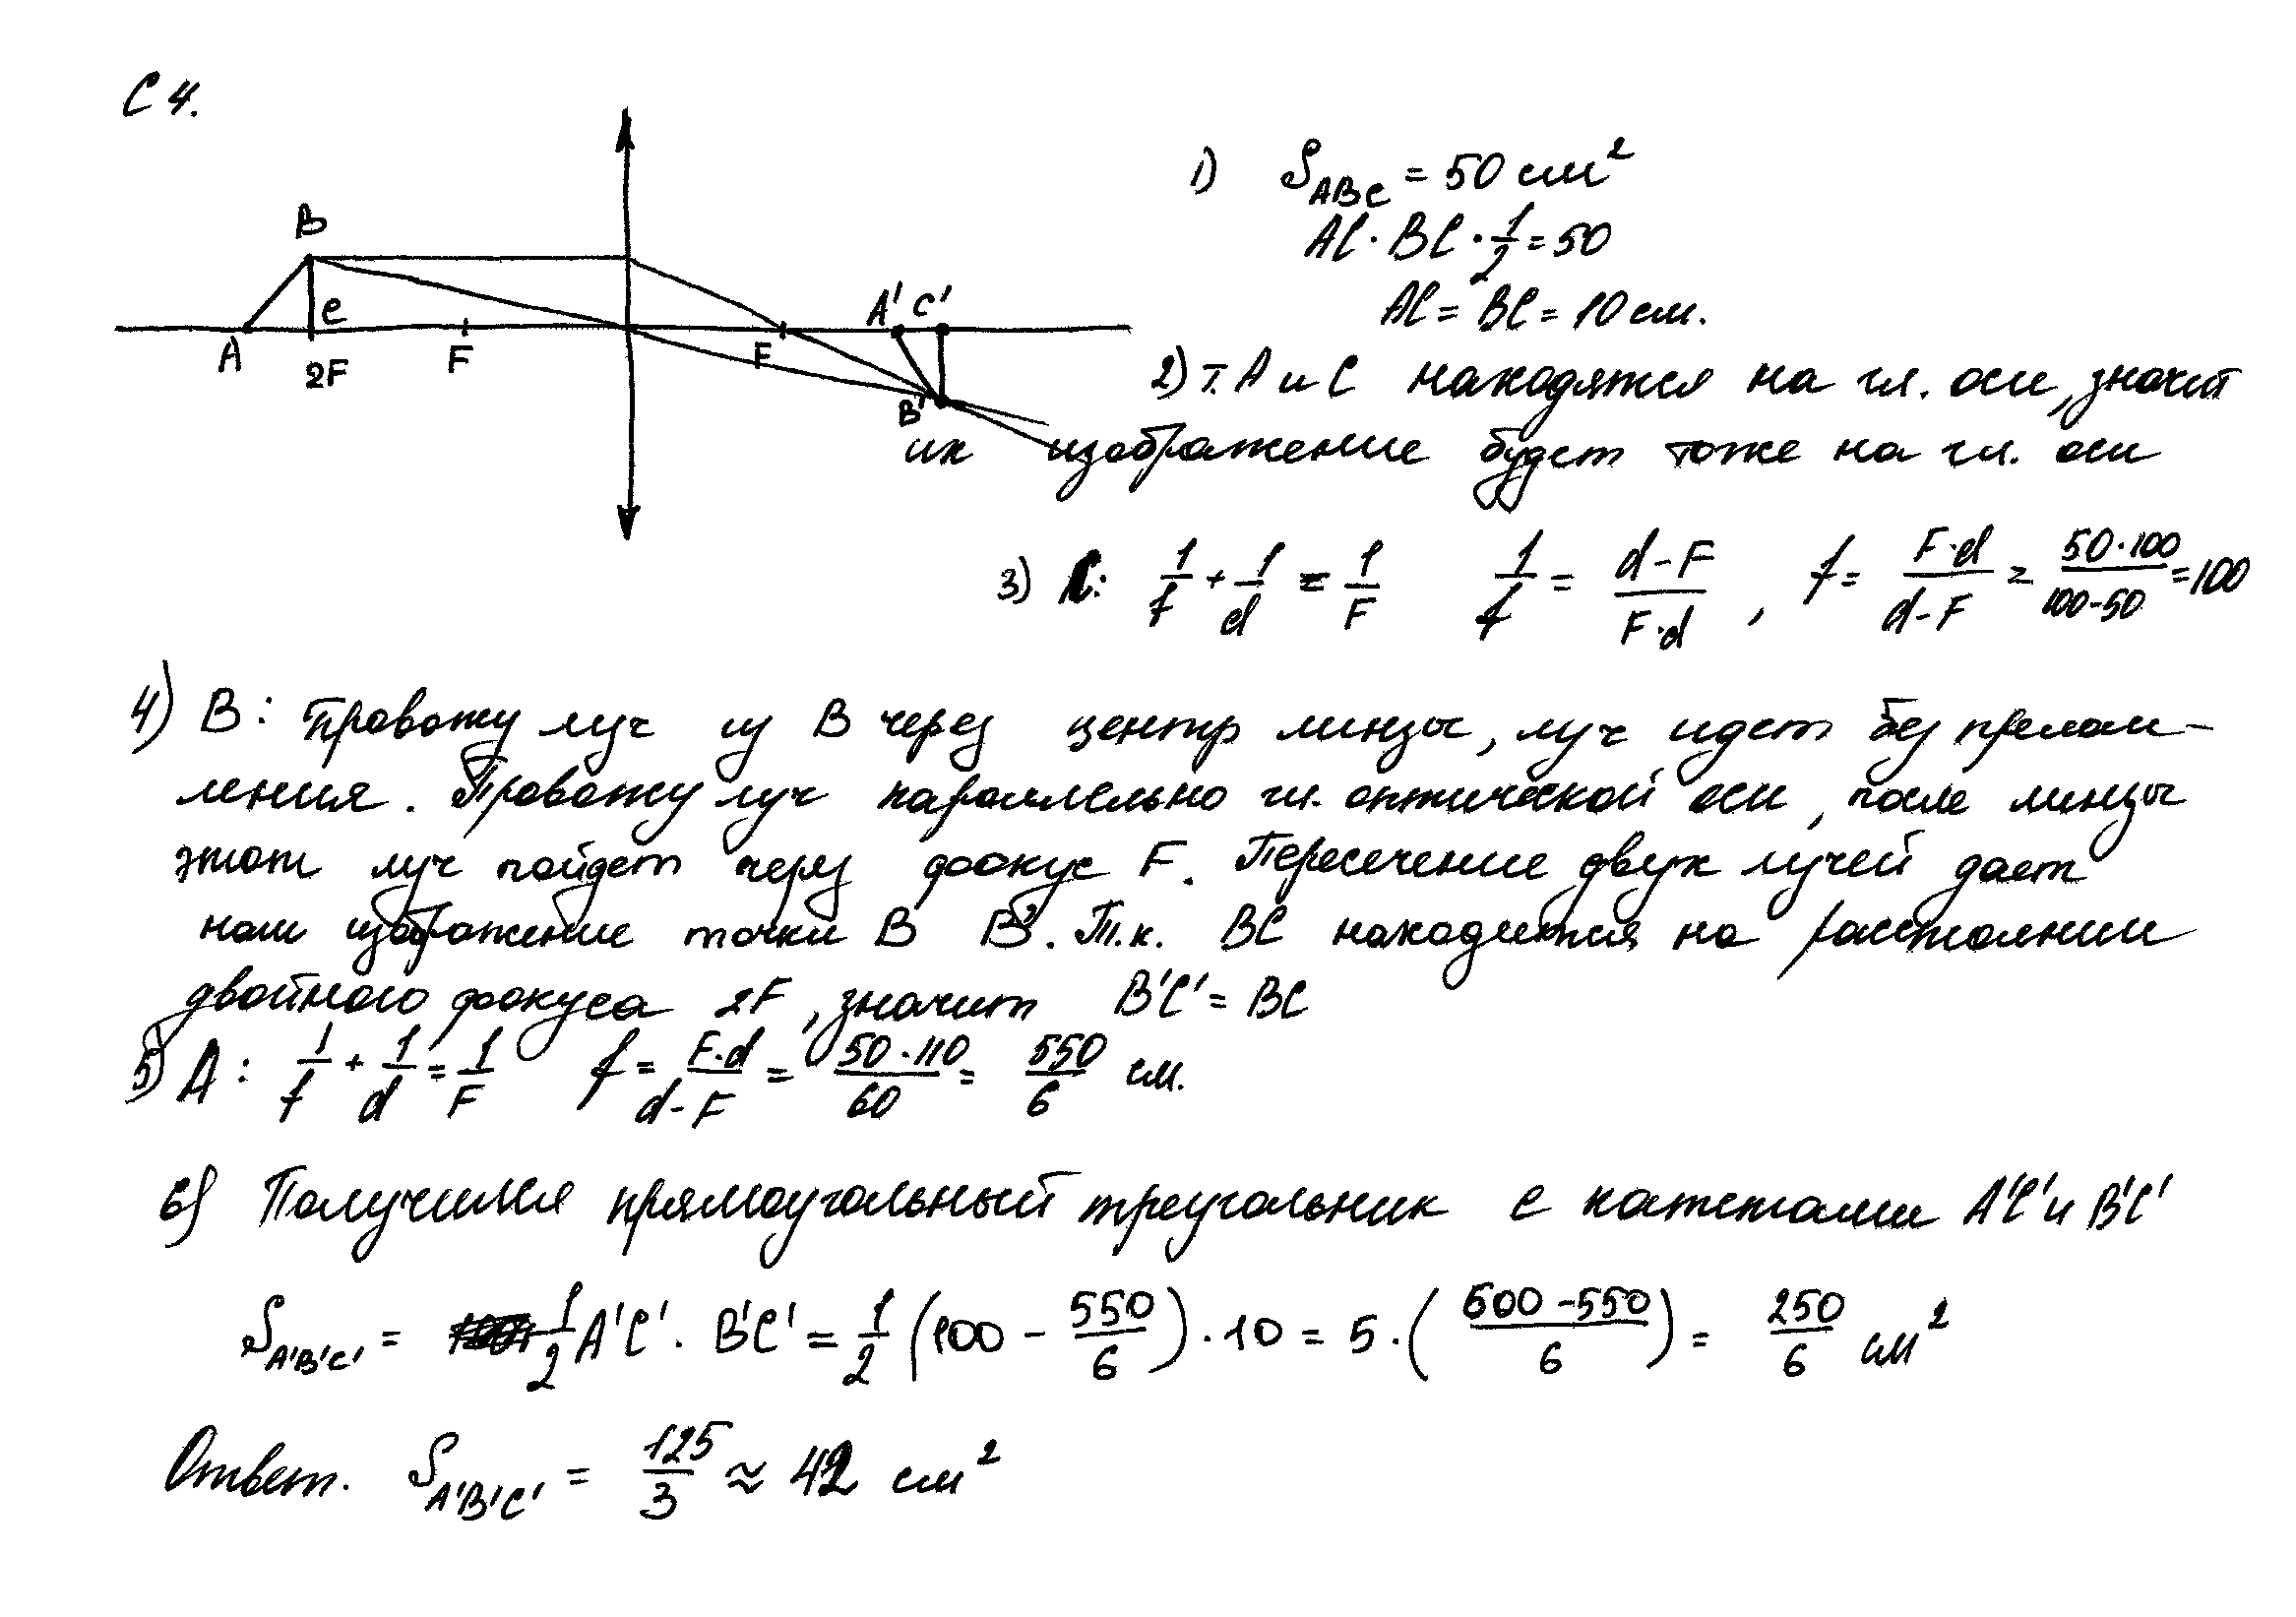 С 4.
B
C
A
2F
F
F
A' C'
B'
1) S_ABC = 50 см²
AC · BC · 1/2 = 50
AC = BC = 10 см.
2) т. А и С находятся на гл. оси, значит
их изображение будет тоже на гл. оси
3) C: 1/f + 1/d = 1/F 1/f = (d-F)/(F·d) , f = (F·d)/(d-F) = (50·100)/(100-50) = 100
4) B: Провожу луч из B через центр линзы, луч идет без прелом-
ления. Провожу луч параллельно гл. оптической оси, после линзы
этот луч пойдет через фокус F. Пересечение двух лучей дает
нам изображение точки B B'. Т.к. BC находится на расстоянии
двойного фокуса 2F, значит B'C' = BC
5) A: 1/f + 1/d = 1/F f = (F·d)/(d-F) = (50·110)/60 = 550/6 см.
6) Получился прямоугольный треугольник с катетами A'C' и B'C'
S_A'B'C' = 1/2 A'C' · B'C' = 1/2 (100 - 550/6) · 10 = 5 · ((600-550)/6) = 250/6 см²
Ответ. S_A'B'C' = 125/3 ≈ 42 см²